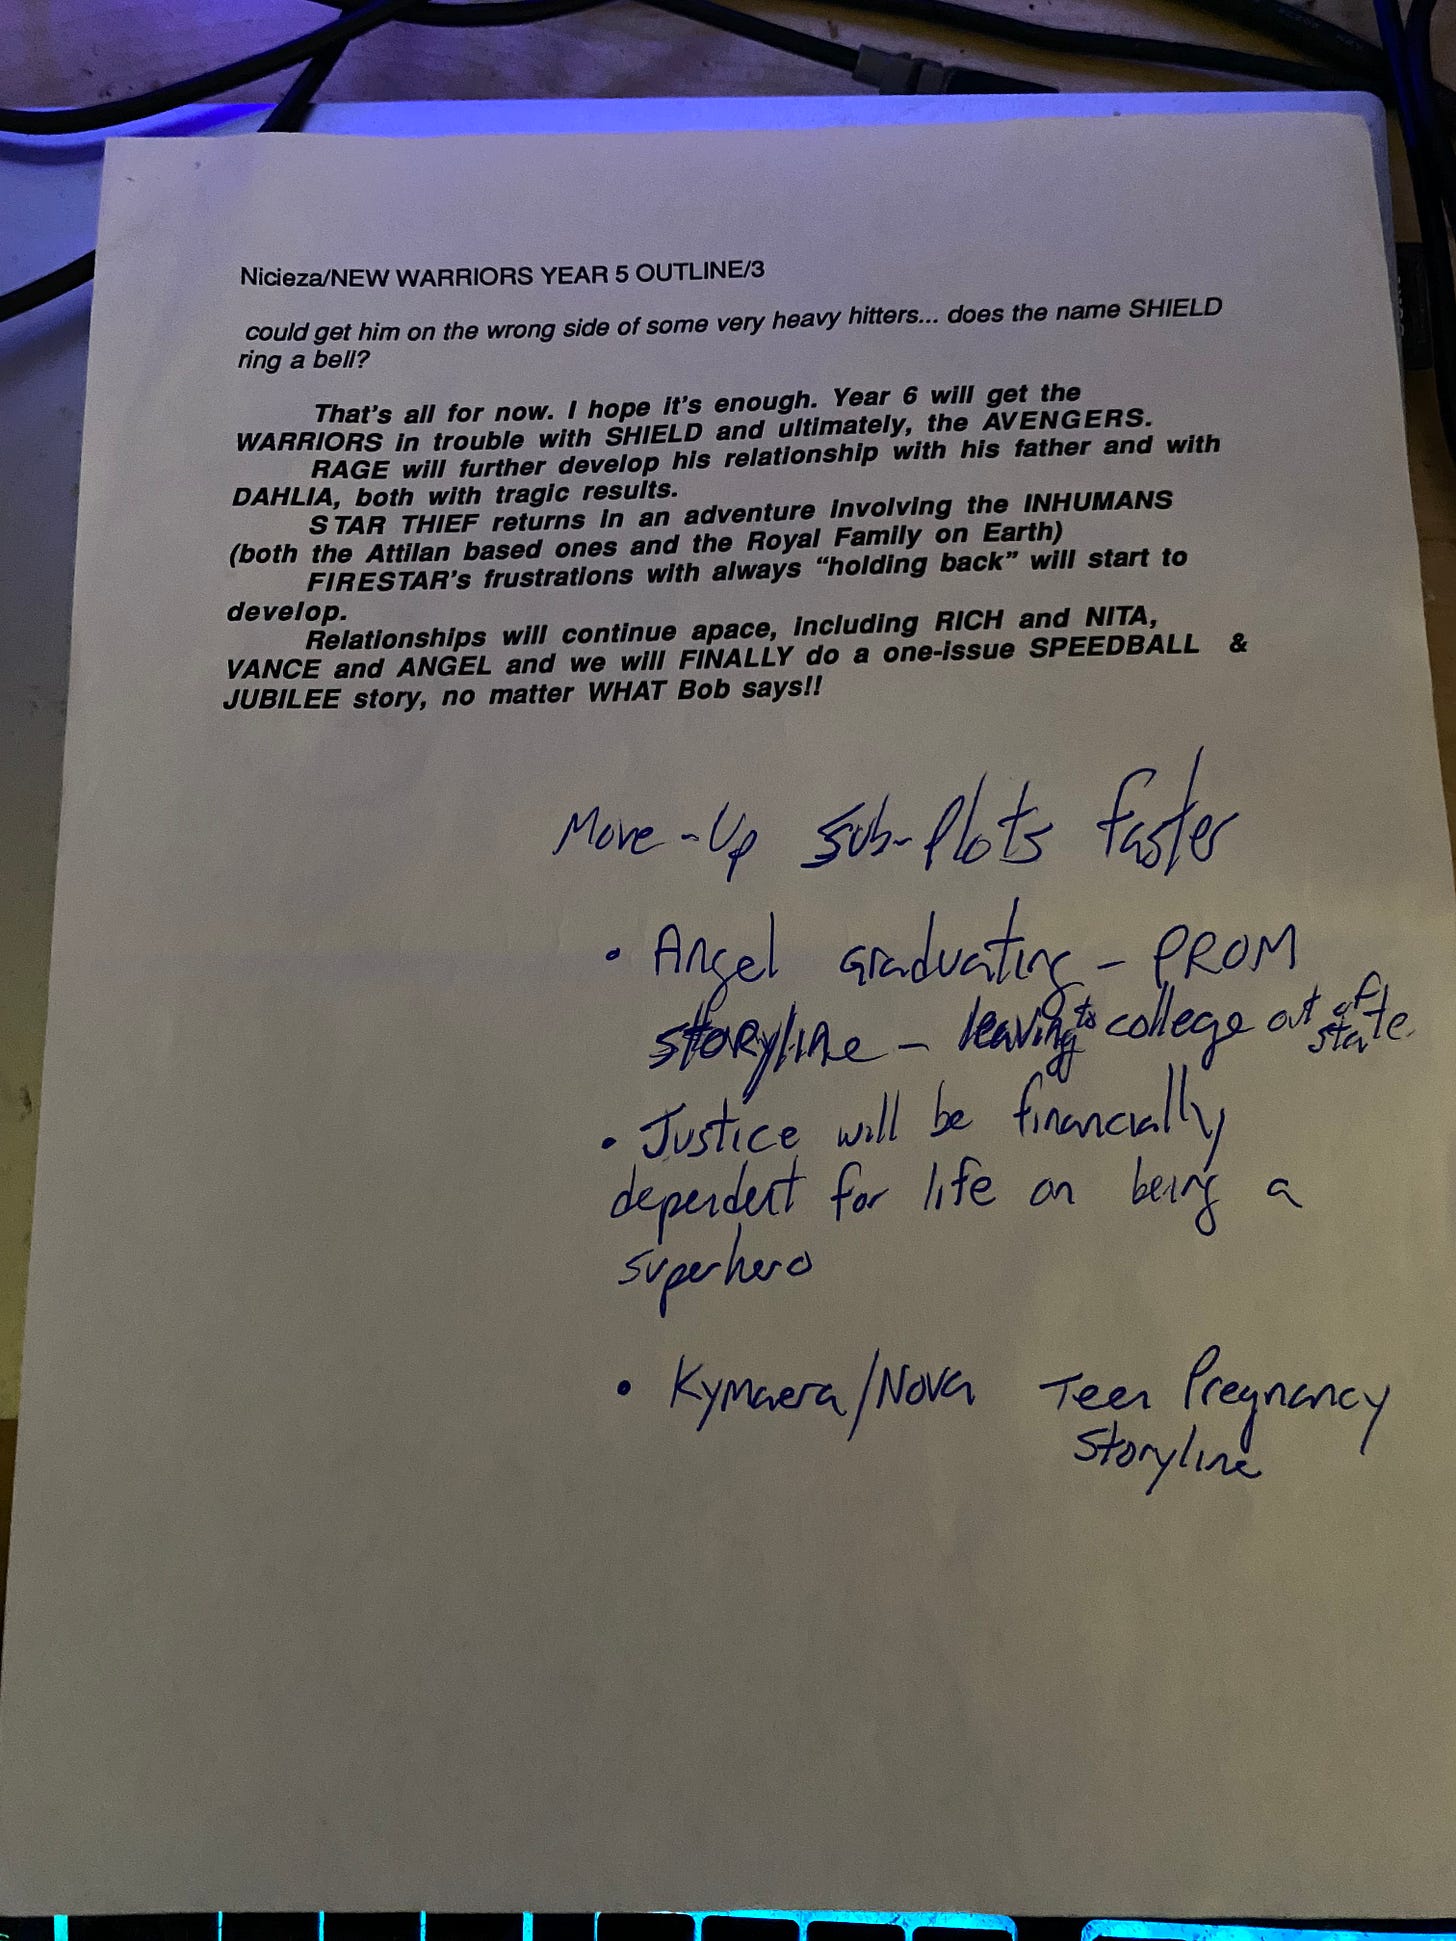 Nicieza/NEW WARRIORS YEAR 5 OUTLINE/3
could get him on the wrong side of some very heavy hitters... does the name SHIELD
ring a bell?
That's all for now. I hope it's enough. Year 6 will get the
WARRIORS in trouble with SHIELD and ultimately, the AVENGERS.
RAGE will further develop his relationship with his father and with
DAHLIA, both with tragic results.
STAR THIEF returns in an adventure involving the INHUMANS
(both the Attilan based ones and the Royal Family on Earth)
FIRESTAR's frustrations with always “holding back” will start to
develop.
Relationships will continue apace, including RICH and NITA,
VANCE and ANGEL and we will FINALLY do a one-issue SPEEDBALL &
JUBILEE story, no matter WHAT Bob says!!
Move-Up Sub-Plots faster
• Angel Graduating – PROM
storyline – leaving to college out of state
• Justice will be financially
dependent for life on being a
superhero
• Kymaera/Nova Teen Pregnancy
Storyline